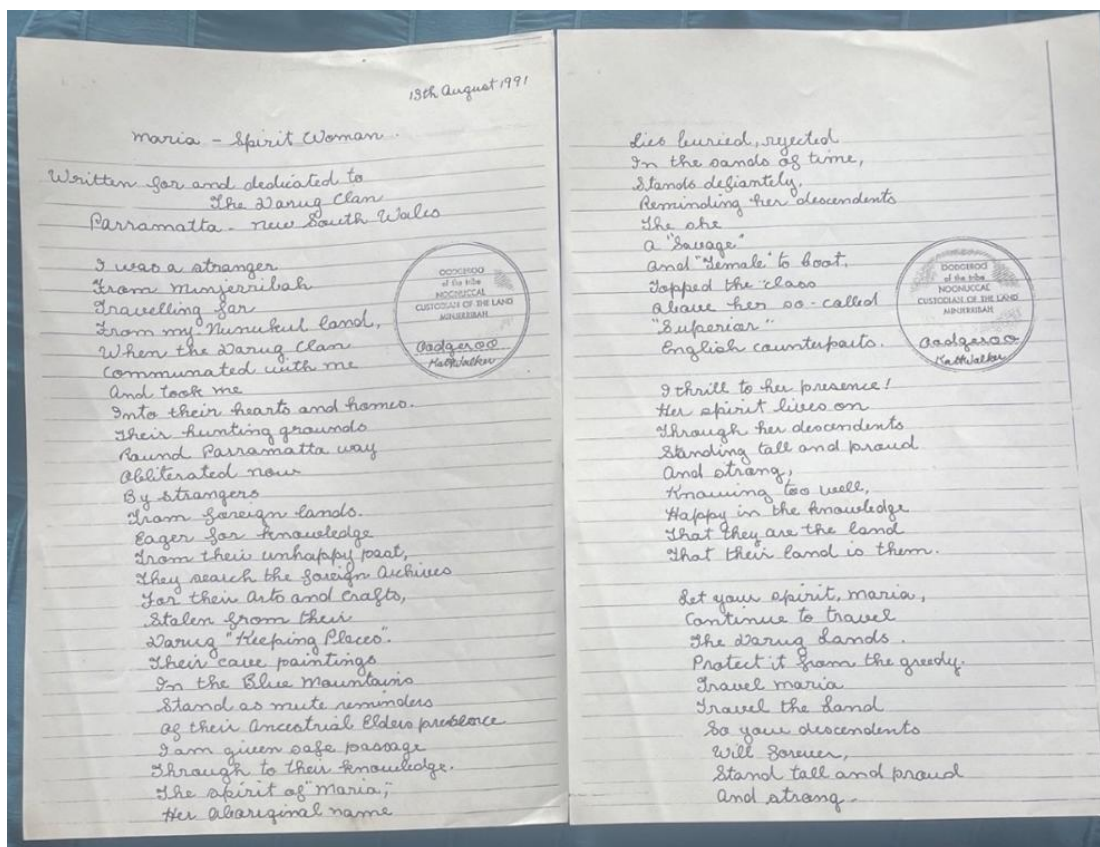 13th August 1991
Maria - Spirit Woman.
Written for and dedicated to
The Darug Clan
Parramatta - New South Wales
I was a stranger
From Minjerribah
Travelling far
From my Nunukul land,
When the Darug Clan
Communated with me
And took me
Into their hearts and homes.
Their hunting grounds
Round Parramatta way
Obliterated now
By strangers
From foreign lands.
Eager for knowledge
From their unhappy past,
They search the foreign Archives
For their Arts and Crafts,
Stolen from their
Darug "Keeping Places".
Their cave paintings
In the Blue Mountains
Stand as mute reminders
Of their Ancestrial Elders presence
I am given safe passage
Through to their knowledge.
The spirit of "Maria",
Her Aboriginal name
OODGEROO
of the tribe
NOONUCCAL
CUSTODIAN OF THE LAND
MINJERRIBAH
Oodgeroo
Kath Walker
Lies buried, rejected
In the sands of time,
Stands defiantely,
Reminding her descendents
The she
A "Savage"
And "Female" to boot,
Topped the class
Above her so-called
"Superior"
English counterparts.
OODGEROO
of the tribe
NOONUCCAL
CUSTODIAN OF THE LAND
MINJERRIBAH
Oodgeroo
Kath Walker
I thrill to her presence!
Her spirit lives on
Through her descendents
Standing tall and proud
And strong,
Knowing too well,
Happy in the knowledge
That they are the land
That their land is them.
Let your spirit, Maria,
Continue to travel
The Darug Lands.
Protect it from the greedy.
Travel Maria
Travel the Land
So your descendents
Will forever,
Stand tall and proud
And strong.